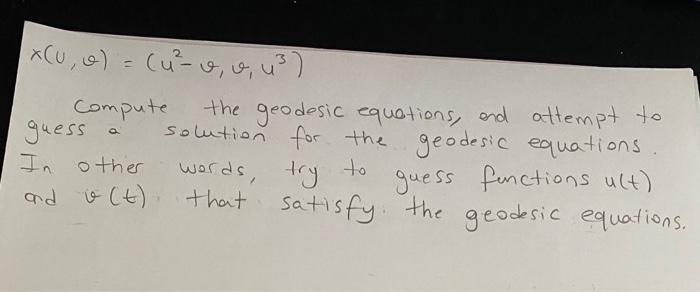 x(u, v) = (u² - v, v, u³)
Compute the geodesic equations, and attempt to
guess a solution for the geodesic equations.
In other words, try to guess functions u(t)
and v(t) that satisfy the geodesic equations.